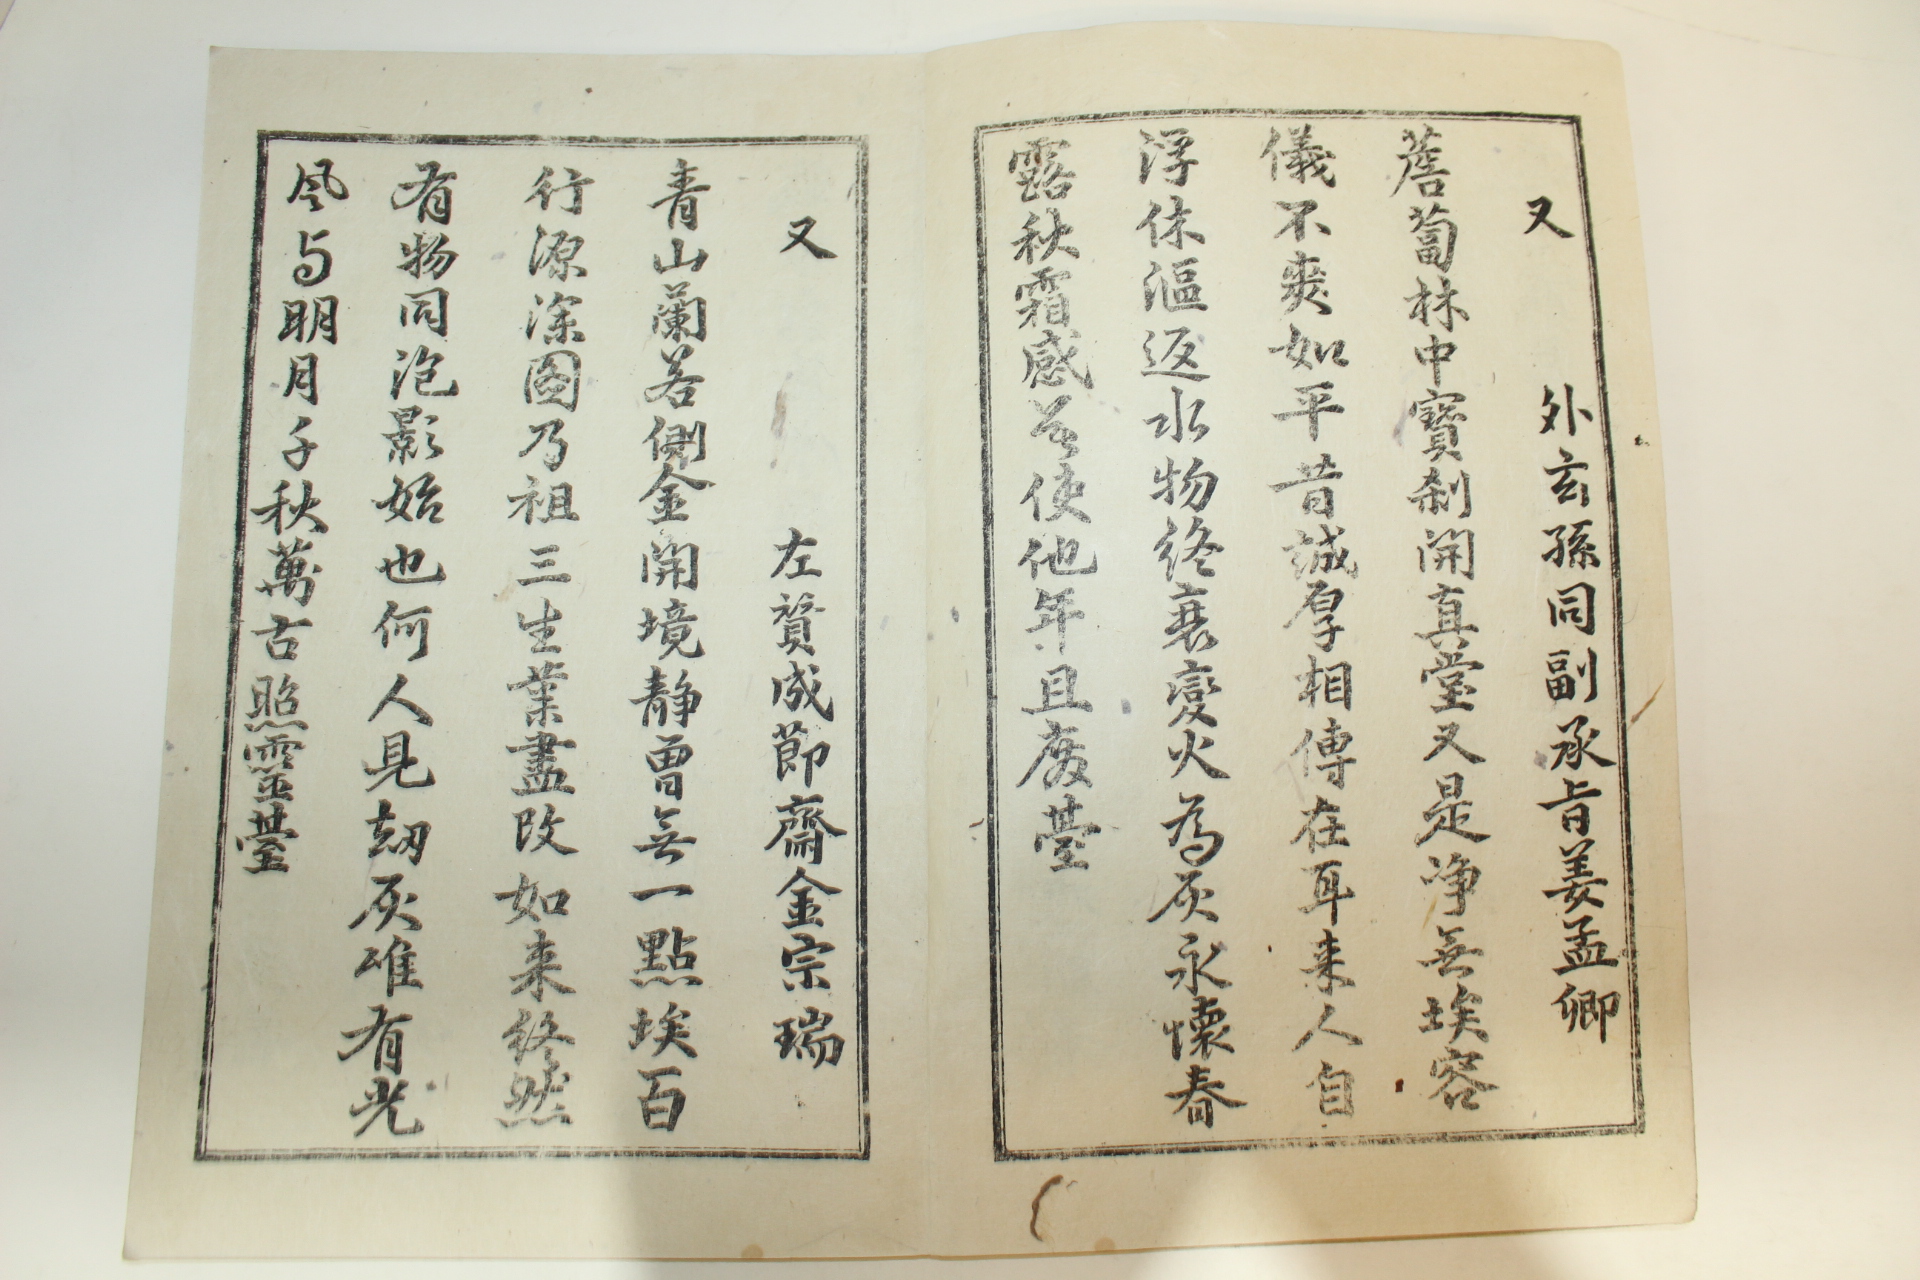 又
外玄孫同副承旨姜孟卿
薝蔔林中寶刹開真堂又是淨無埃容
儀不爽如平昔誠厚相傳在耳來人自
浮休漚返水物終衰變火為灰永懷春
露秋霜感莫使他年且廢臺
又
左贊成節齋金宗瑞
青山蘭若側金開境靜曾無一點埃百
行源深圖乃祖三生業盡改如来終然
有物同泡影始也何人見劫灰唯有光
風与明月千秋萬古照靈臺